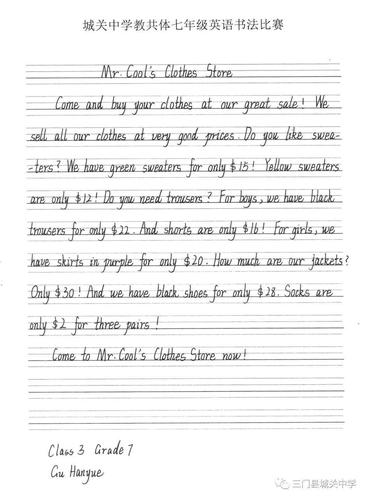 城关中学教共体七年级英语书法比赛
Mr. Cool's Clothes Store
Come and buy your clothes at our great sale! We
sell all our clothes at very good prices. Do you like swea-
-ters? We have green sweaters for only $15! Yellow sweaters
are only $12! Do you need trousers? For boys, we have black
trousers for only $22. And shorts are only $16! For girls, we
have skirts in purple for only $20. How much are our jackets?
Only $30! And we have black shoes for only $28. Socks are
only $2 for three pairs!
Come to Mr. Cool's Clothes Store now!
Class 3 Grade 7
Gu Hanyue
三门县城关中学